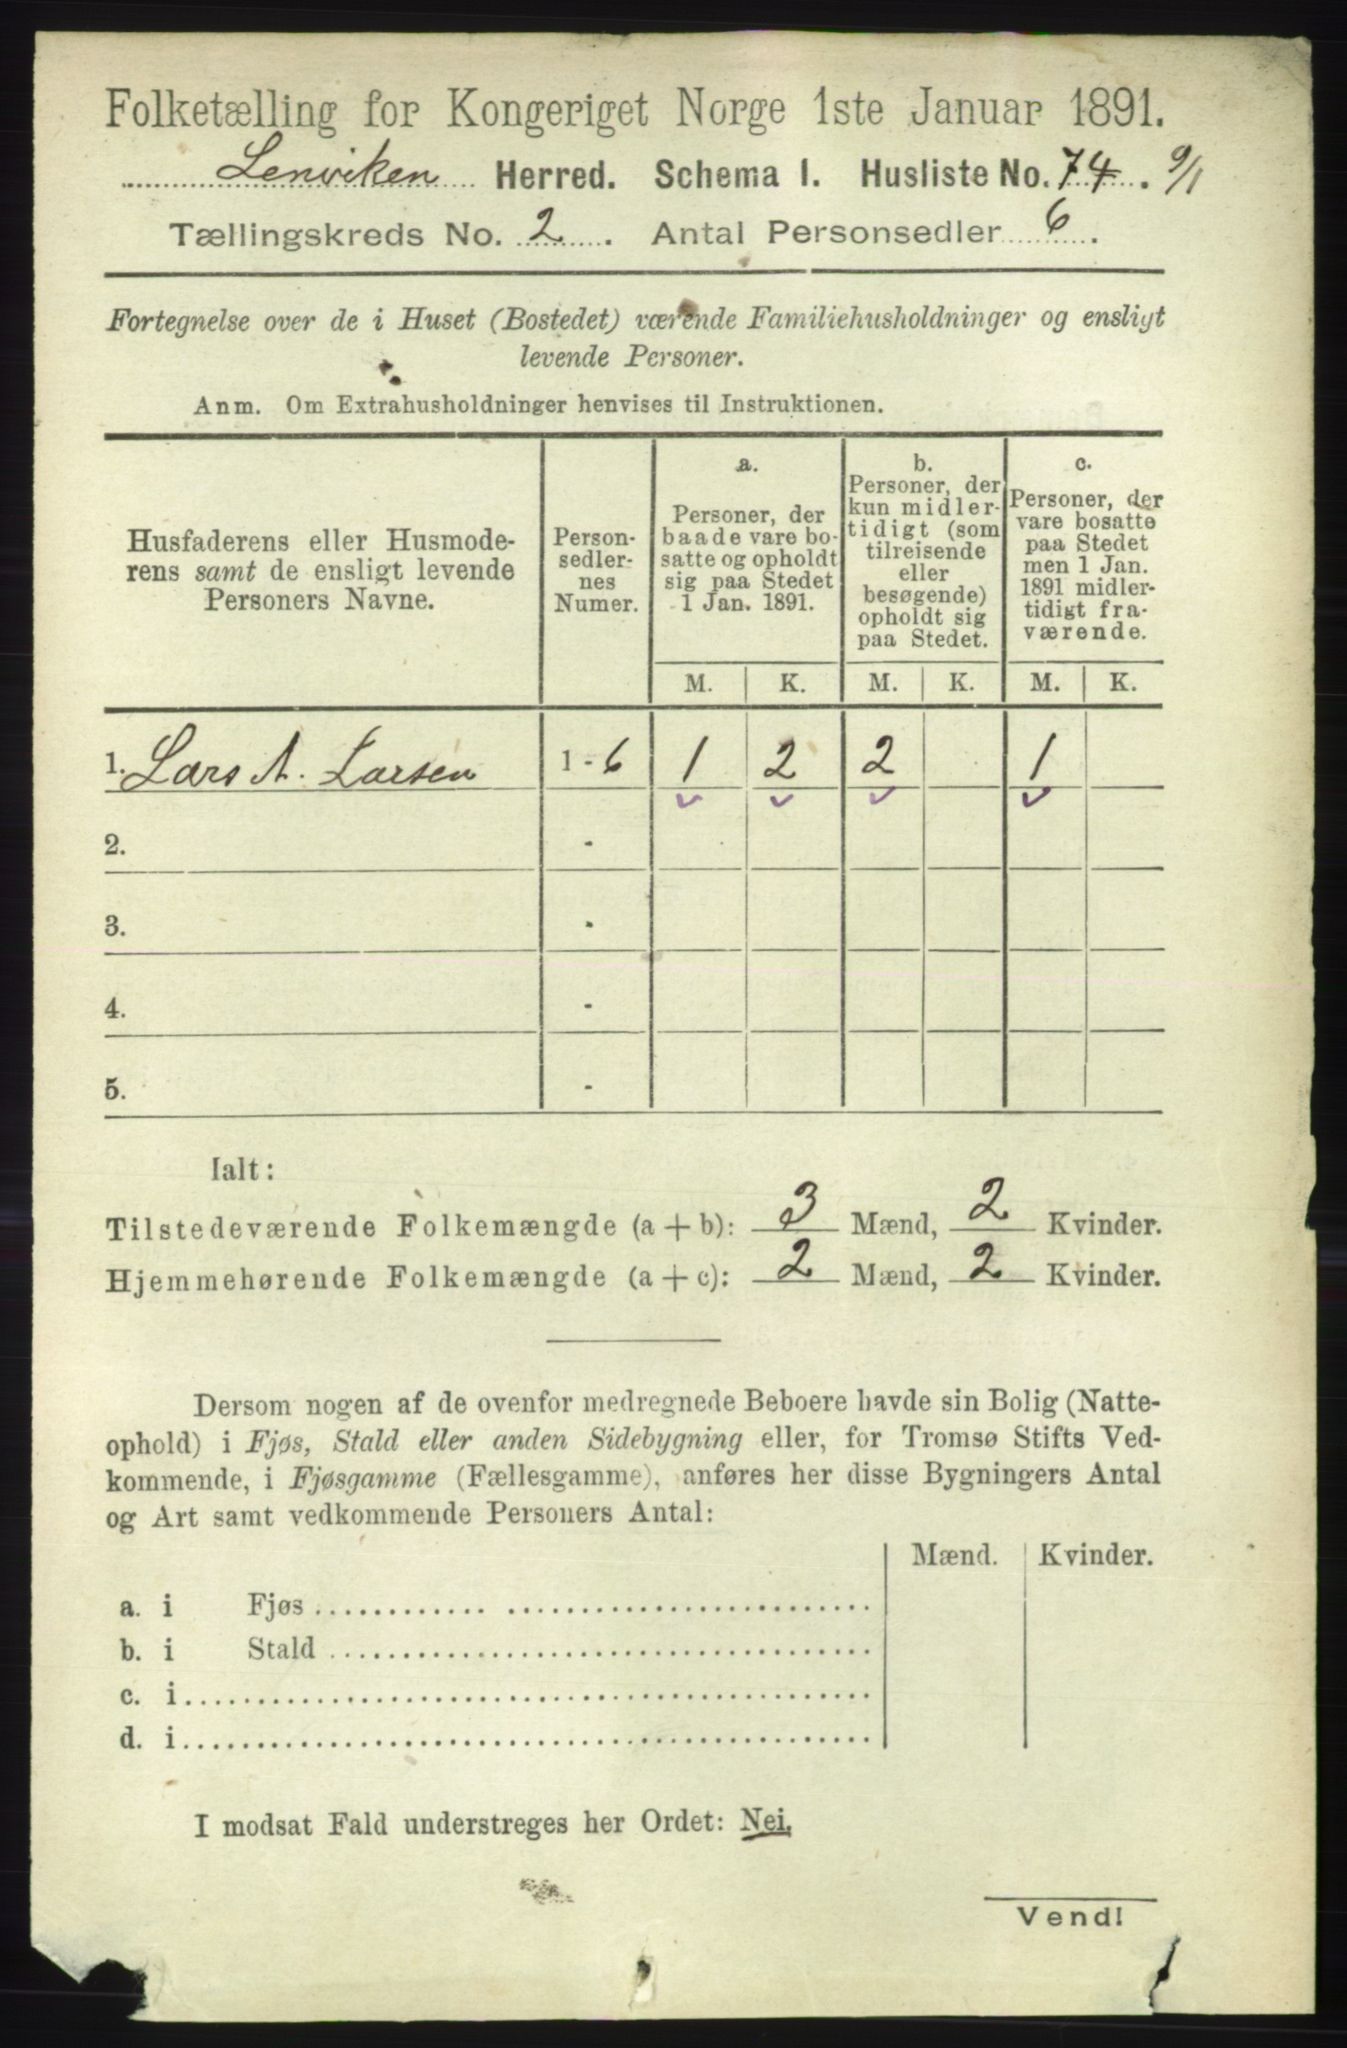 Folketælling for Kongeriget Norge 1ste Januar 1891.
Lenviken Herred. Schema I. Husliste No. 74. 9/1
Tællingskreds No. 2. Antal Personsedler 6.
Fortegnelse over de i Huset (Bostedet) værende Familiehusholdninger og ensligt
levende Personer.
Anm. Om Extrahusholdninger henvises til Instruktionen.
Husfaderens eller Husmode-
rens samt de ensligt levende
Personers Navne.
Person-
sedler-
nes
Numer.
a.
Personer, der
baade vare bo-
satte og opholdt
sig paa Stedet
1 Jan. 1891.
b.
Personer, der
kun midler-
tidigt (som
tilreisende
eller
besøgende)
opholdt sig
paa Stedet.
c.
Personer, der
vare bosatte
paa Stedet
men 1 Jan.
1891 midler-
tidigt fra-
værende.
M. K. M. K. M. K.
1. Lars A. Larsen 1-6 1 2 2 1
2. -
3. -
4. -
5. -
Ialt:
Tilstedeværende Folkemængde (a + b): 3 Mænd, 2 Kvinder.
Hjemmehørende Folkemængde (a + c): 2 Mænd, 2 Kvinder.
Dersom nogen af de ovenfor medregnede Beboere havde sin Bolig (Natte-
ophold) i Fjøs, Stald eller anden Sidebygning eller, for Tromsø Stifts Ved-
kommende, i Fjøsgamme (Fællesgamme), anføres her disse Bygningers Antal
og Art samt vedkommende Personers Antal:
Mænd. Kvinder.
a. i Fjøs
b. i Stald
c. i
d. i
I modsat Fald understreges her Ordet: Nei.
Vend!